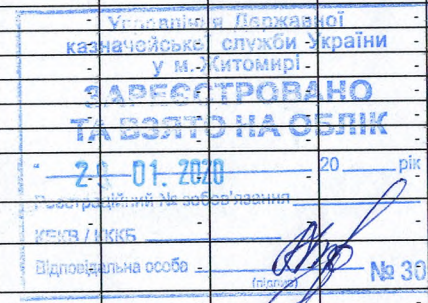 Управління Державної
казначейської служби України
у м. Житомирі
ЗАРЕЄСТРОВАНО
ТА ВЗЯТО НА ОБЛІК
01. 2020 20 рік
Реєстраційний № зобов'язання
КЕКВ / ККК
Відповідальна особа № 30
(підпис)